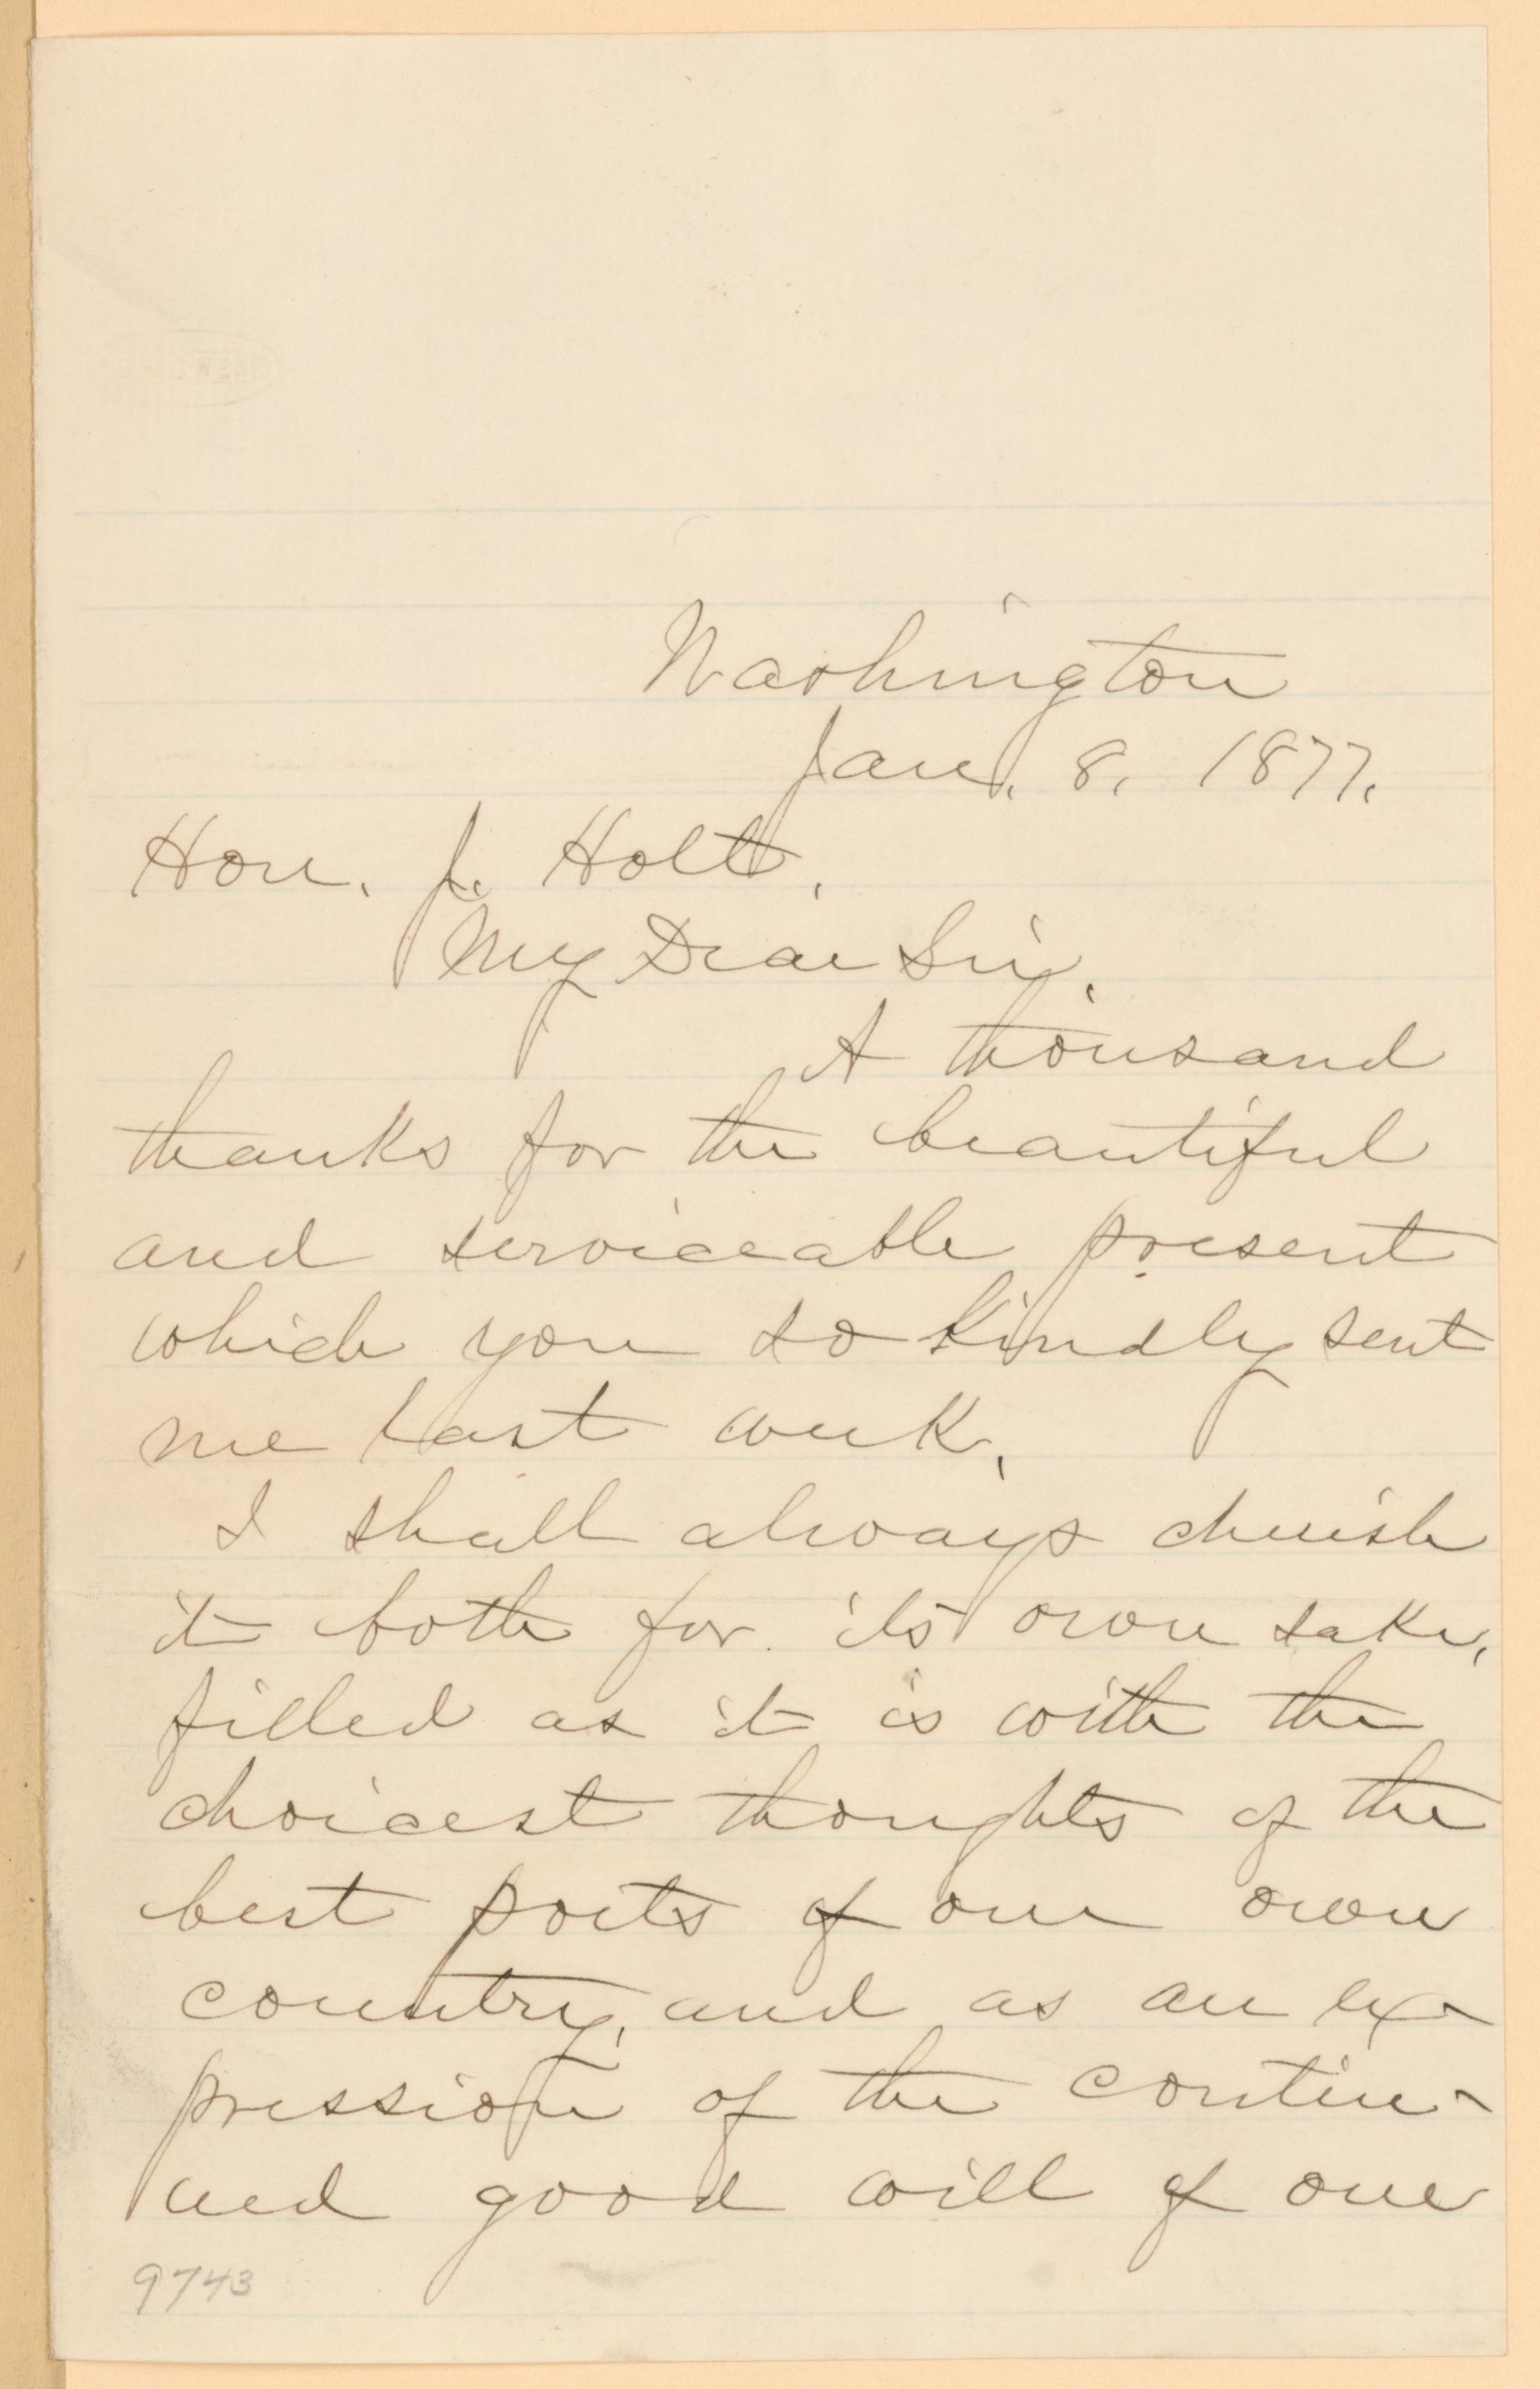 Washington
Jan. 8, 1877.
Hon. J. Holt,
My Dear Sir,
A thousand
thanks for the beautiful
and serviceable present
which you so kindly sent
me last week.
I shall always cherish
it both for its own sake,
filled as it is with the
choicest thoughts of the
best poets of our own
country, and as an ex-
pression of the contin-
ued good will of one
9743